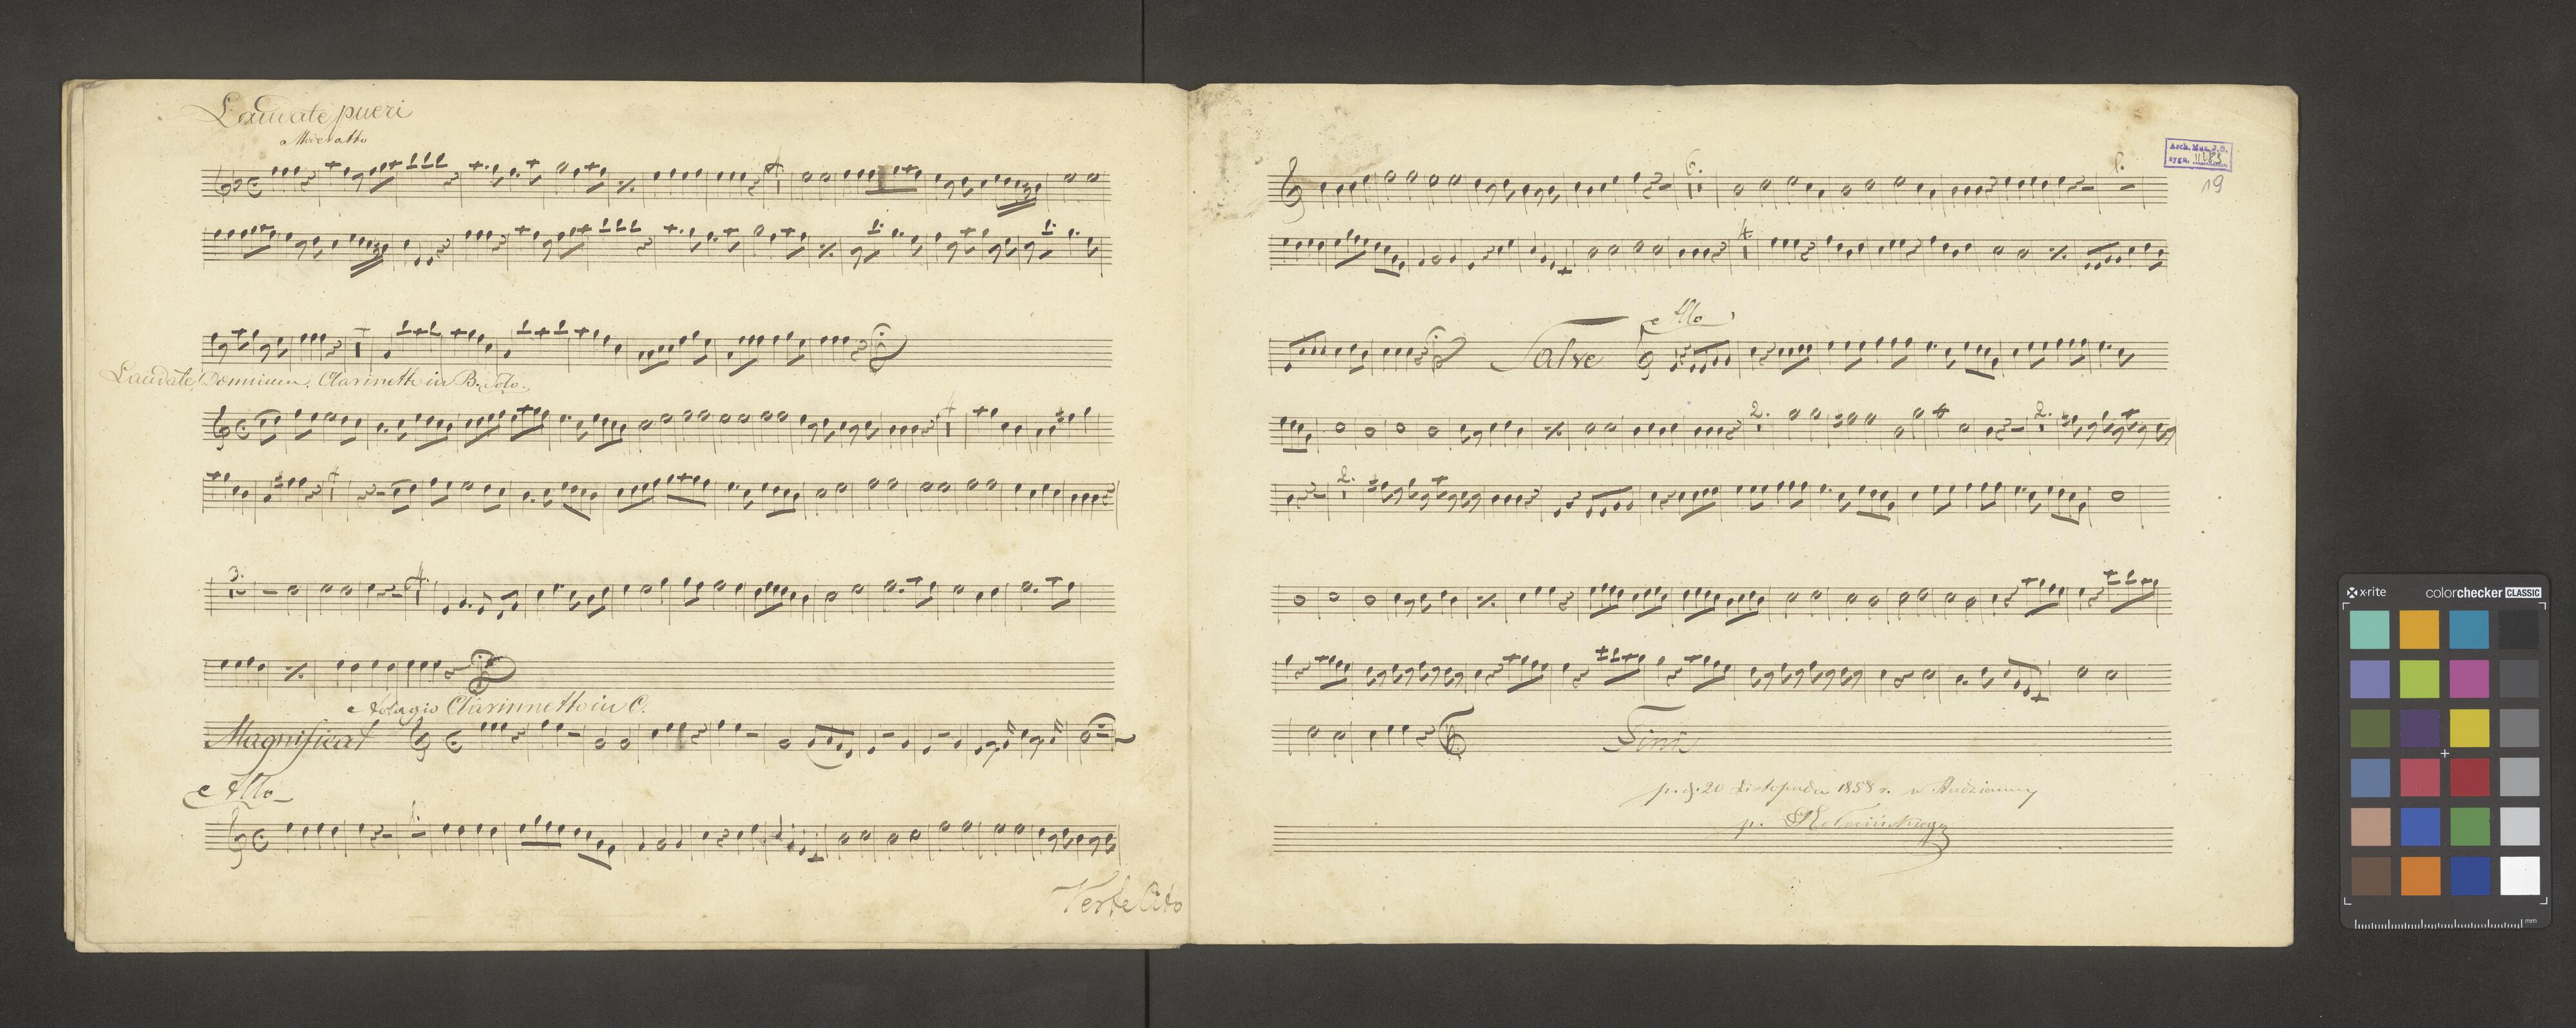 Laudate pueri
Moderatto
4
Laudate Dominum. Clarinetto in B. Solo.
4
4
3.
4.
Adagio Clarinnetto in C.
Magnificat
Allo
1.
Verte Cito
Arch. Muz. J. G.
sygn.
19
6.
1.
4.
Allo
Salve
2.
2.
2.
Finis
p. d. 20 Listopada 1858 r. w
p.
x-rite
colorchecker CLASSIC
mm